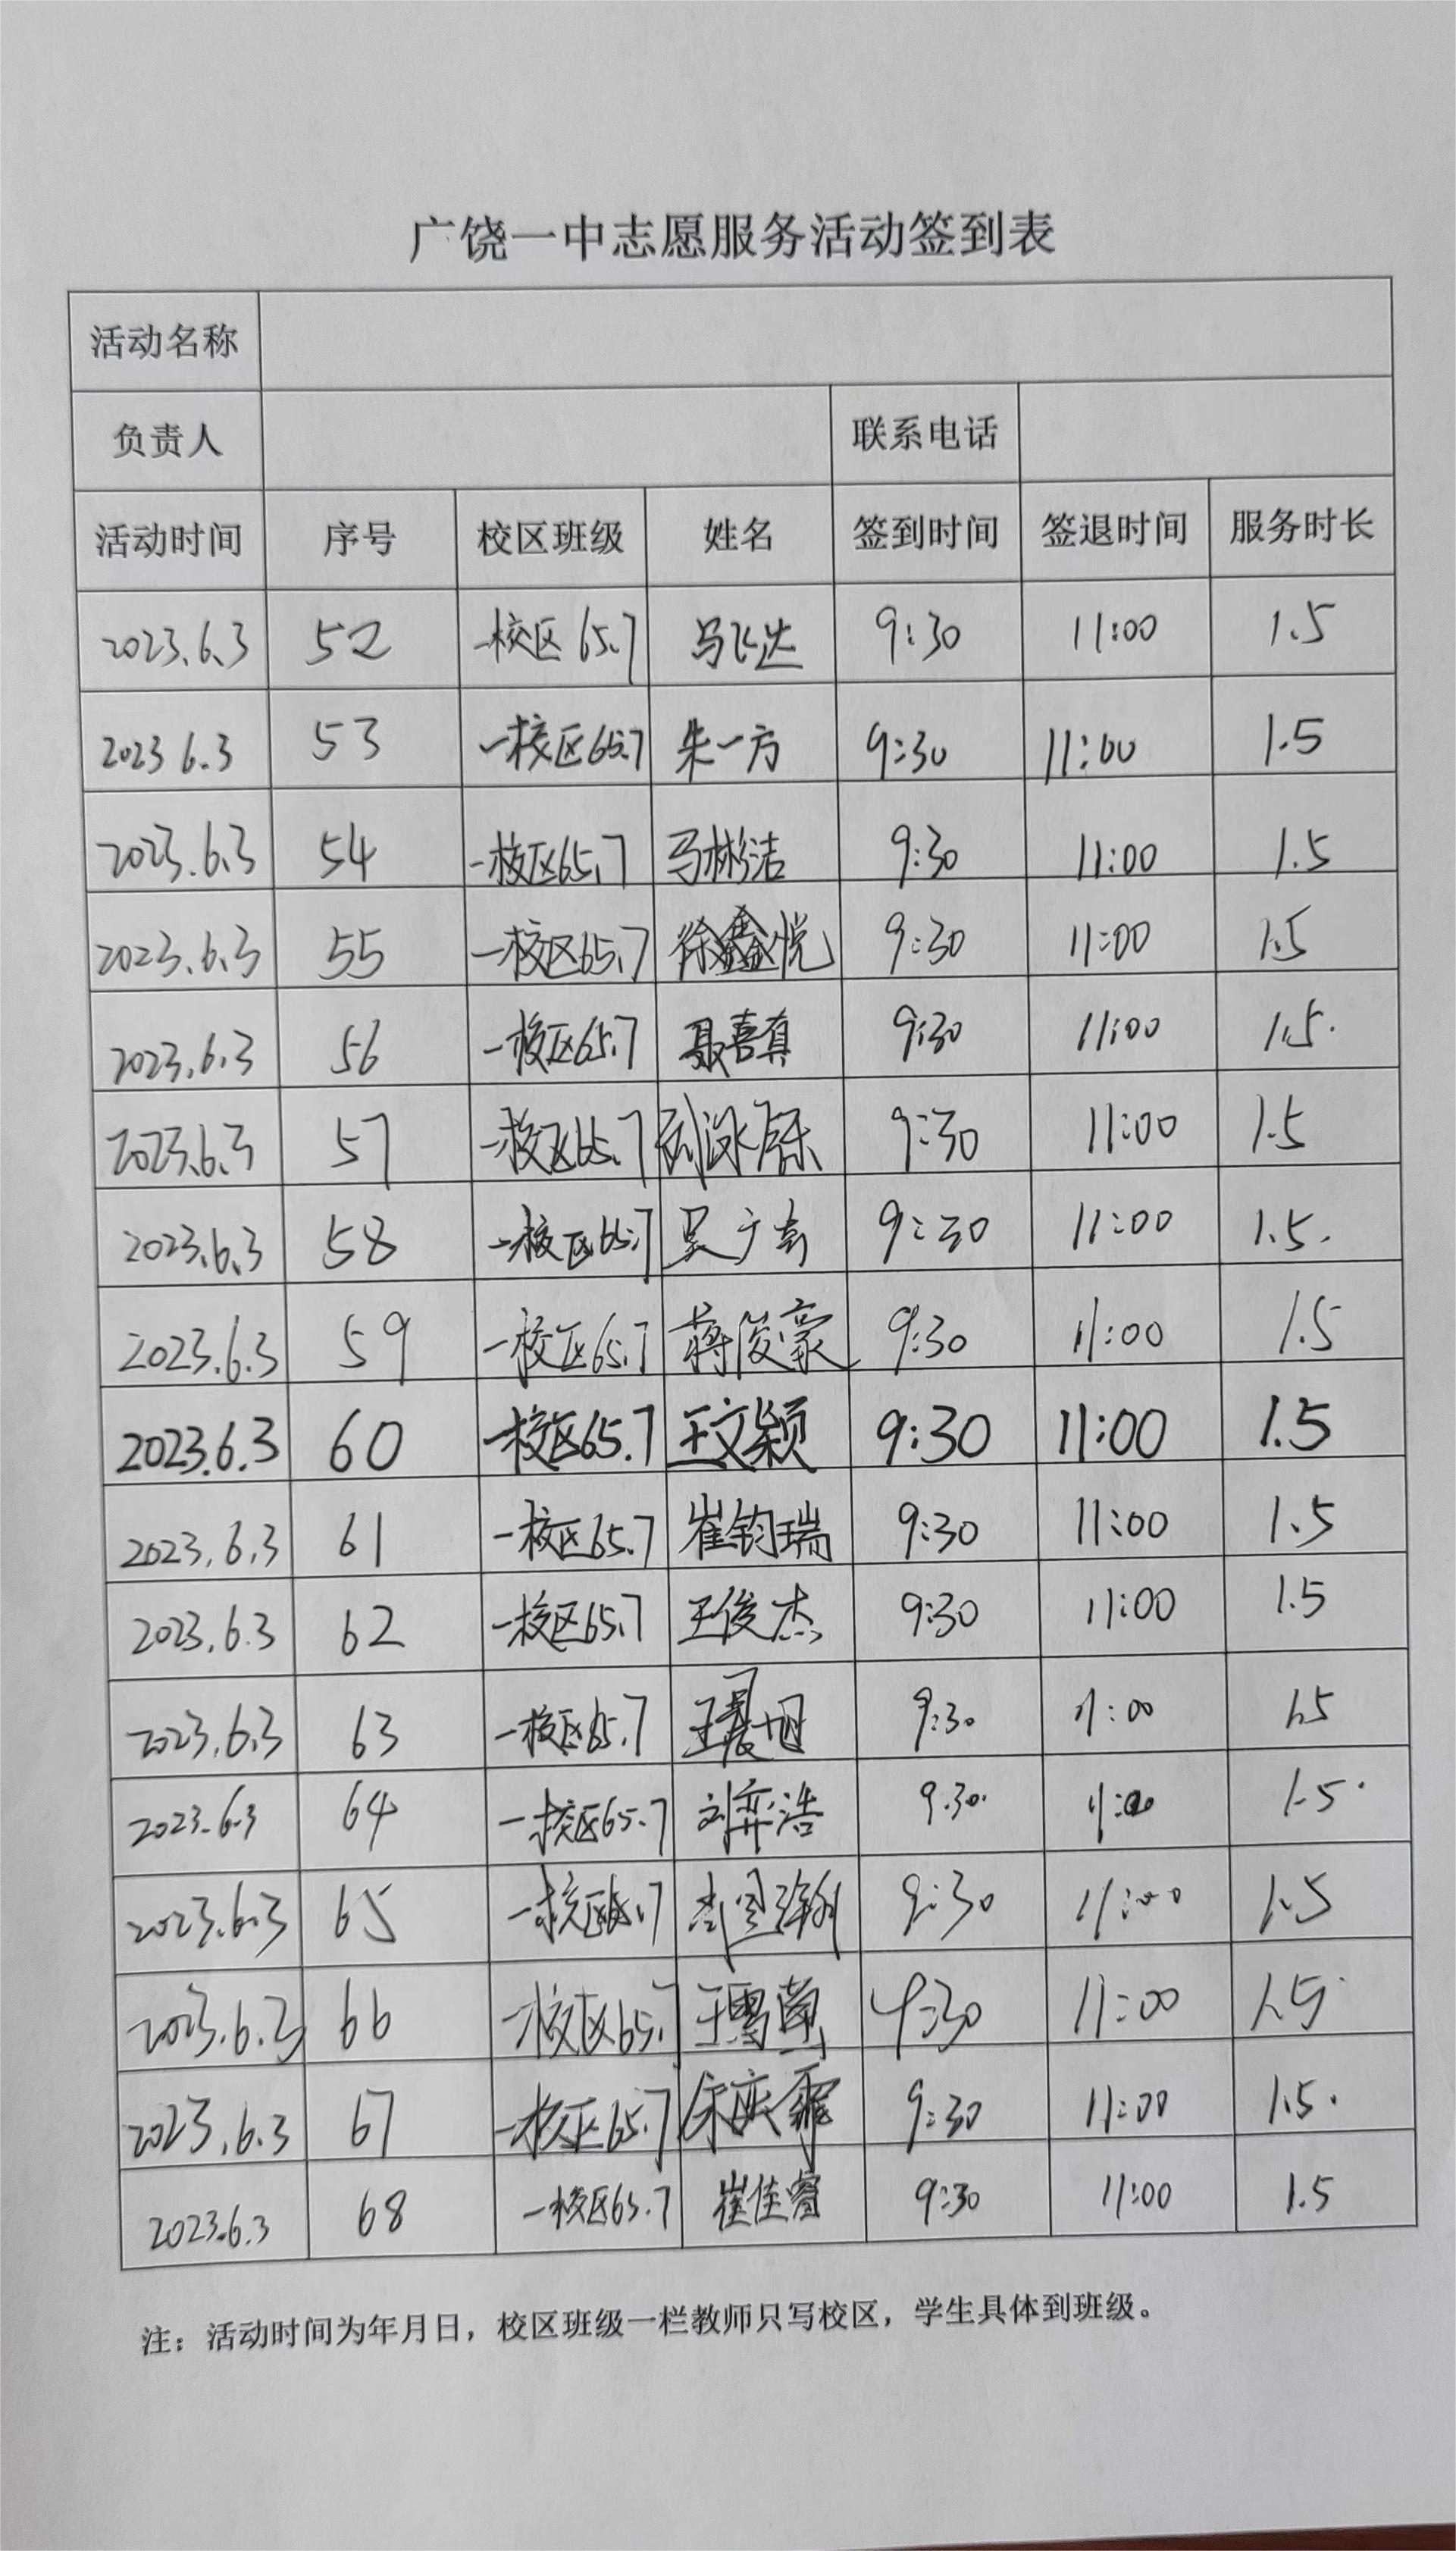 广饶一中志愿服务活动签到表
活动名称
负责人 联系电话
活动时间 序号 校区班级 姓名 签到时间 签退时间 服务时长
2023.6.3 52 一校区 65.7 马飞达 9:30 11:00 1.5
2023 6.3 53 一校区65.7 朱一方 9:30 11:00 1.5
2023.6.3 54 一校区65.7 马彬洁 9:30 11:00 1.5
2023.6.3 55 一校区65.7 徐鑫悦 9:30 11:00 1.5
2023.6.3 56 一校区65.7 聂喜真 9:30 11:00 1.5.
2023.6.3 57 一校区65.7 9:30 11:00 1.5
2023.6.3 58 一校区65.7 9:30 11:00 1.5.
2023.6.3 59 一校区65.7 蒋俊豪 9:30 11:00 1.5
2023.6.3 60 一校区65.7 王文颖 9:30 11:00 1.5
2023.6.3 61 一校区65.7 崔钧瑞 9:30 11:00 1.5
2023.6.3 62 一校区65.7 王俊杰 9:30 11:00 1.5
2023.6.3 63 一校区65.7 王晨旭 9:30 11:00 1.5
2023.6.3 64 一校区65.7 刘弈浩 9.30. 11:00 1.5.
2023.6.3 65 一校区65.7 9:30 11:00 1.5
2023.6.3 66 一校区65.7 9:30 11:00 1.5
2023.6.3 67 一校区65.7 9:30 11:00 1.5.
2023.6.3 68 一校区65.7 崔佳睿 9:30 11:00 1.5
注：活动时间为年月日，校区班级一栏教师只写校区，学生具体到班级。